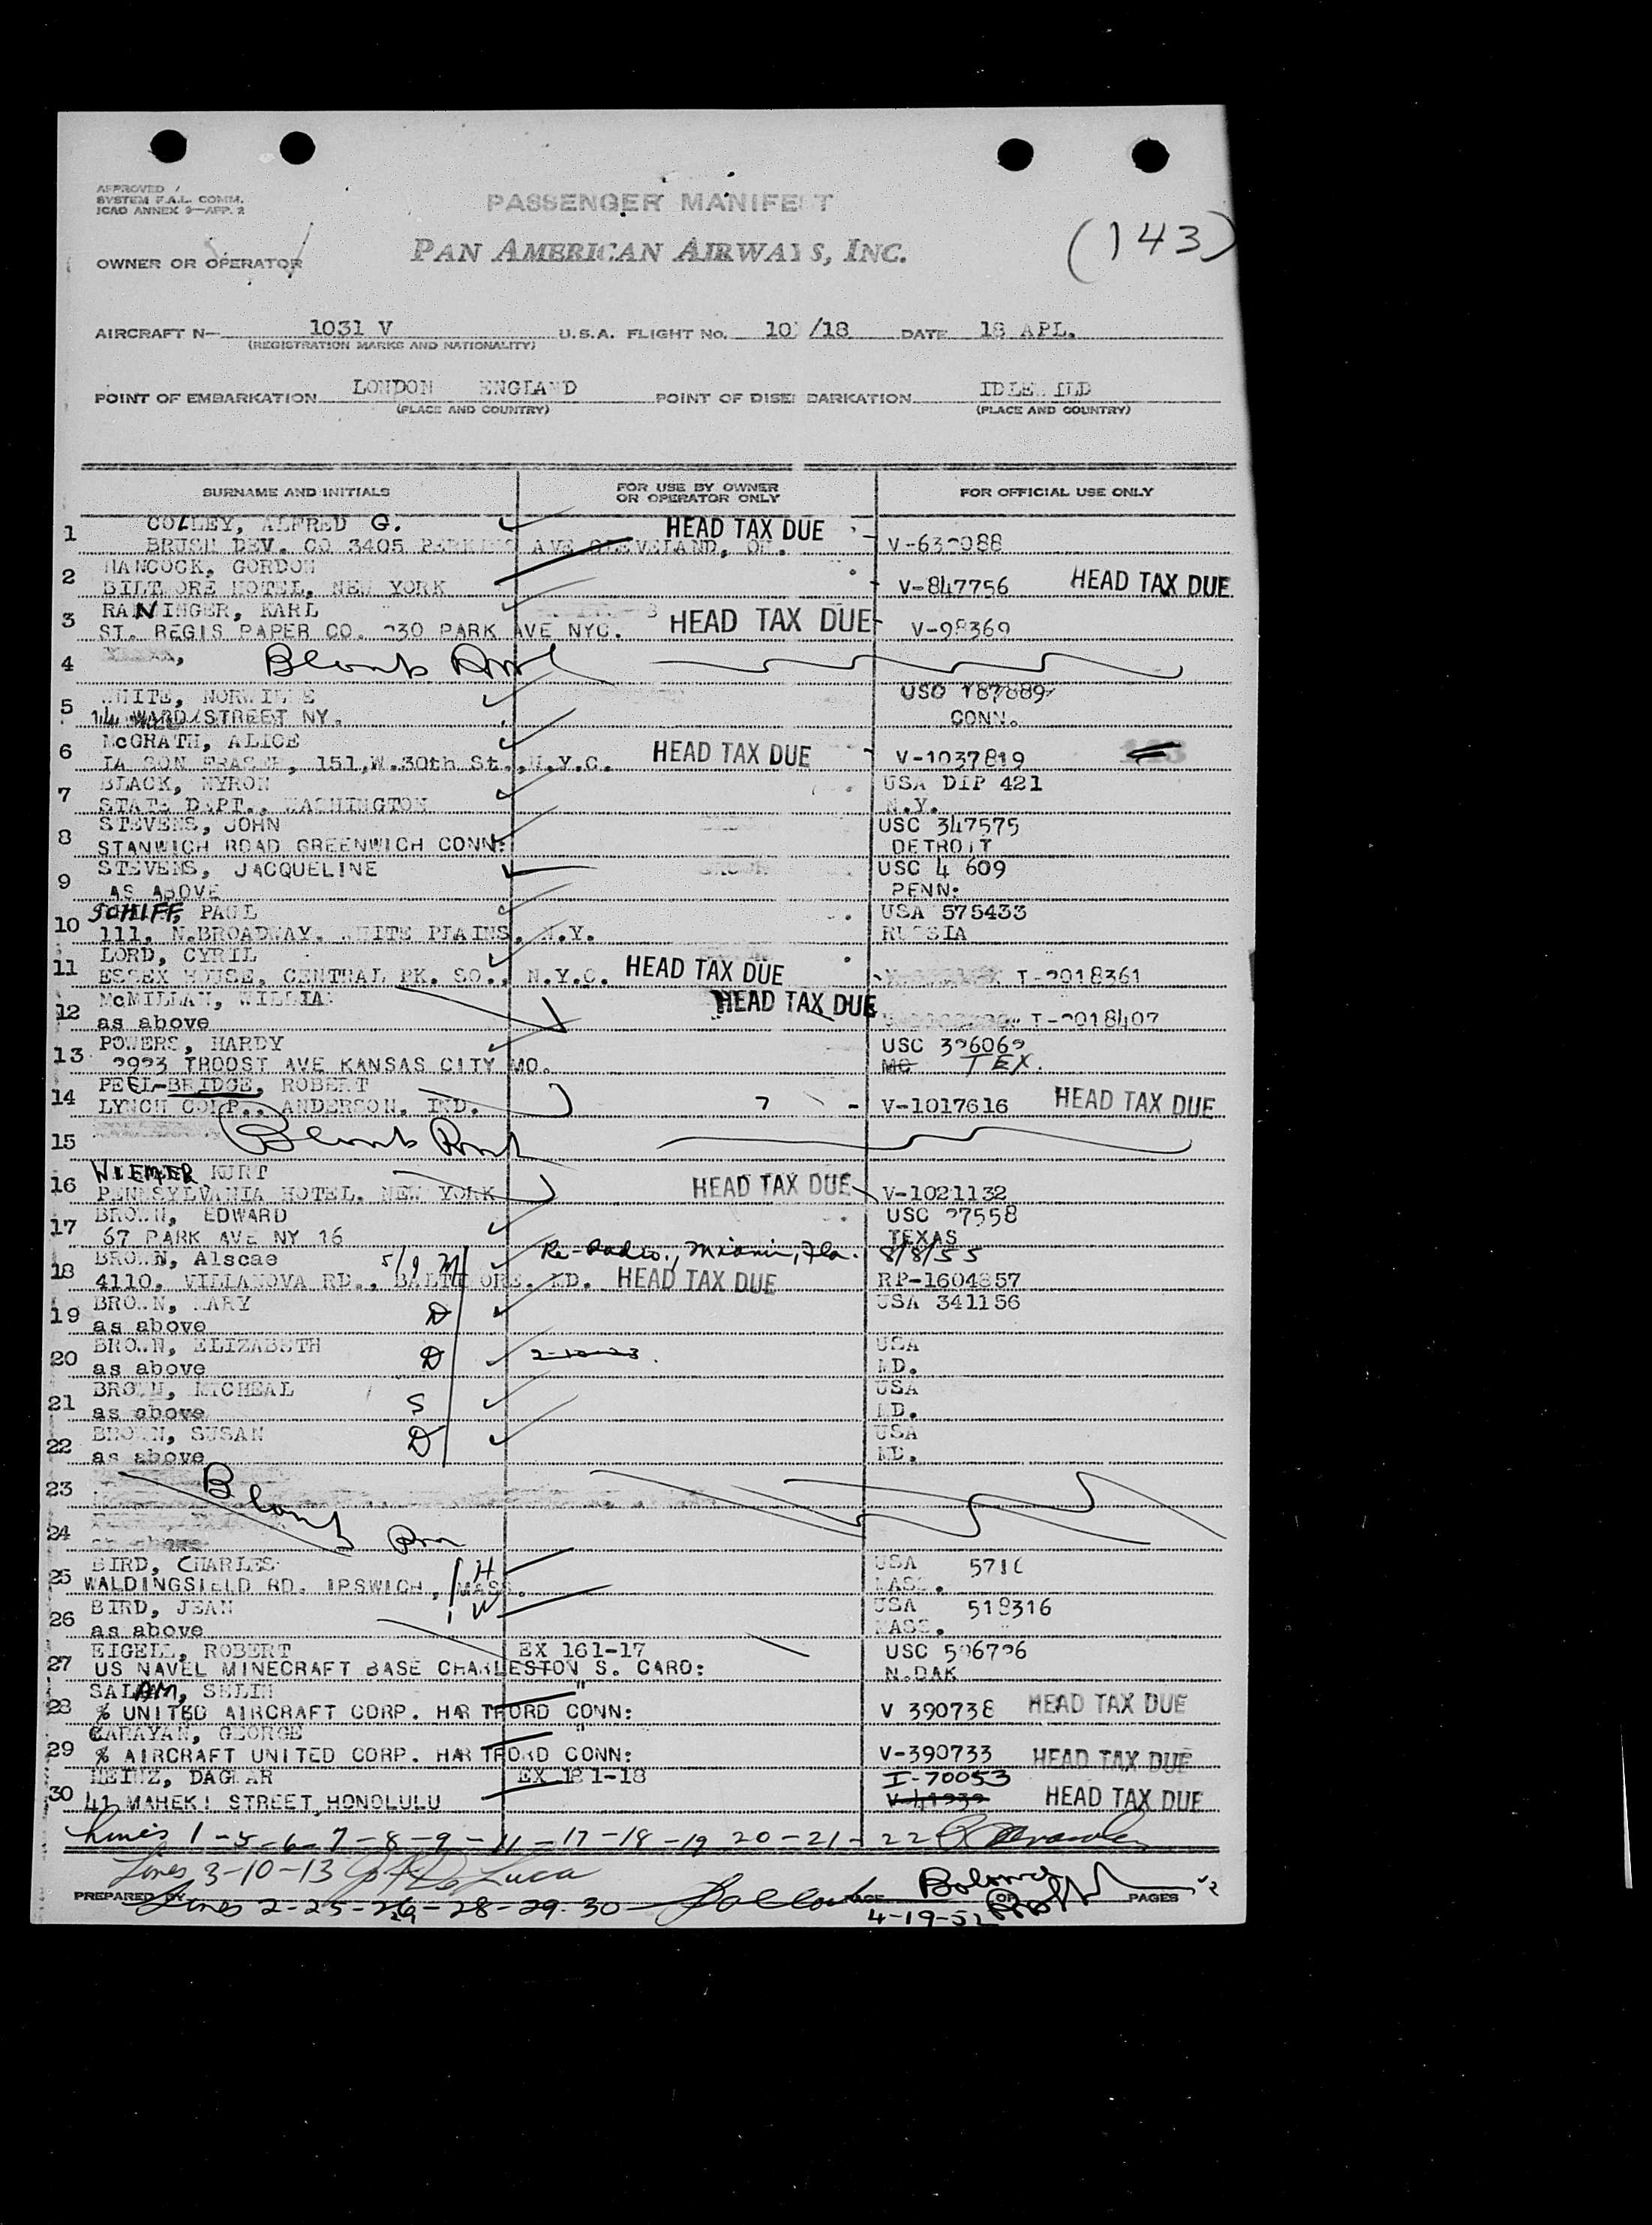 APPROVED
SYSTEM F.A.L. COMM.
ICAO ANNEX 9—APP. 2
PASSENGER MANIFEST
(143)
OWNER OR OPERATOR PAN AMERICAN AIRWAYS, INC.
AIRCRAFT N— 1031 V U.S.A. FLIGHT No. /18 DATE 18 APL.
(REGISTRATION MARKS AND NATIONALITY)
POINT OF EMBARKATION LONDON ENGLAND POINT OF DISEMBARKATION IDLEWILD
(PLACE AND COUNTRY) (PLACE AND COUNTRY)
SURNAME AND INITIALS FOR USE BY OWNER OR OPERATOR ONLY FOR OFFICIAL USE ONLY
1 COLLEY, ALFRED G. HEAD TAX DUE
BRUSH DEV. CO 3405 PERKINS AVE CLEVELAND, OH.
2 HANCOCK, GORDON
BILTMORE HOTEL, NEW YORK V-847756 HEAD TAX DUE
3 RANINGER, KARL HEAD TAX DUE
ST. REGIS PAPER CO. 230 PARK AVE NYC. V-98369
4 Blank
5 WHITE, NORWINE USC 187889
14 WARD STREET NY. CONN.
6 McGRATH, ALICE HEAD TAX DUE
151,W.30th St.,N.Y.C. V-1037819
7 BLACK, MYRON USA DIP 421
STATE DEPT., WASHINGTON N.Y.
8 STEVENS, JOHN USC 347575
STANWICH ROAD GREENWICH CONN: DETROIT
9 STEVENS, JACQUELINE USC 4 609
AS ABOVE PENN:
10 SCHIFF, PAUL USA 575433
111, N.BROADWAY. WHITE PLAINS, N.Y. RUSSIA
11 LORD, CYRIL HEAD TAX DUE
ESSEX HOUSE, CENTRAL PK. SO., N.Y.C. T-2018361
12 McMILLAN, WILLIAM HEAD TAX DUE
as above T-2018407
13 POWERS, HARDY USC 326062
2923 TROOST AVE KANSAS CITY MO. MO TEX.
14 PEEL-BRIDGE, ROBERT
LYNCH CORP., ANDERSON, IND. V-1017616 HEAD TAX DUE
15 Blank
16 WIEMER KURT
PENNSYLVANIA HOTEL, NEW YORK HEAD TAX DUE V-1021132
17 BROWN, EDWARD USC 27558
67 PARK AVE NY 16 TEXAS
18 BROWN, Alscae 5/9 M Miami, Fla. 8/8/55
4110, VILLANOVA RD., BALTIMORE, MD. HEAD TAX DUE RP-1604857
19 BROWN, MARY D USA 341156
as above
20 BROWN, ELIZABETH D USA
as above MD.
21 BROWN, MICHEAL S USA
as above MD.
22 BROWN, SUSAN D USA
as above MD.
23 Blank
24
as above
25 BIRD, CHARLES H USA
WALDINGSIELD RD. IPSWICH, MASS. MASS.
26 BIRD, JEAN W USA 518316
as above MASS.
27 EIGELL, ROBERT EX 161-17 USC 506726
US NAVEL MINECRAFT BASE CHARLESTON S. CARO: N.DAK
28 SALAM, SELIM "
% UNITED AIRCRAFT CORP. HARTFORD CONN: V 390738 HEAD TAX DUE
29 CARAYAN, GEORGE "
% AIRCRAFT UNITED CORP. HARTFORD CONN: V-390733 HEAD TAX DUE
30 HEINZ, DAGMAR EX 181-18 I-70053
41 MAHEKI STREET,HONOLULU HEAD TAX DUE
Lines 1-5-6-7-8-9-11-17-18-19 20-21-22
Lines 3-10-13 De Luca
PREPARED BY PAGE OF PAGES
Lines 2-25-26-28-29-30
4-19-52